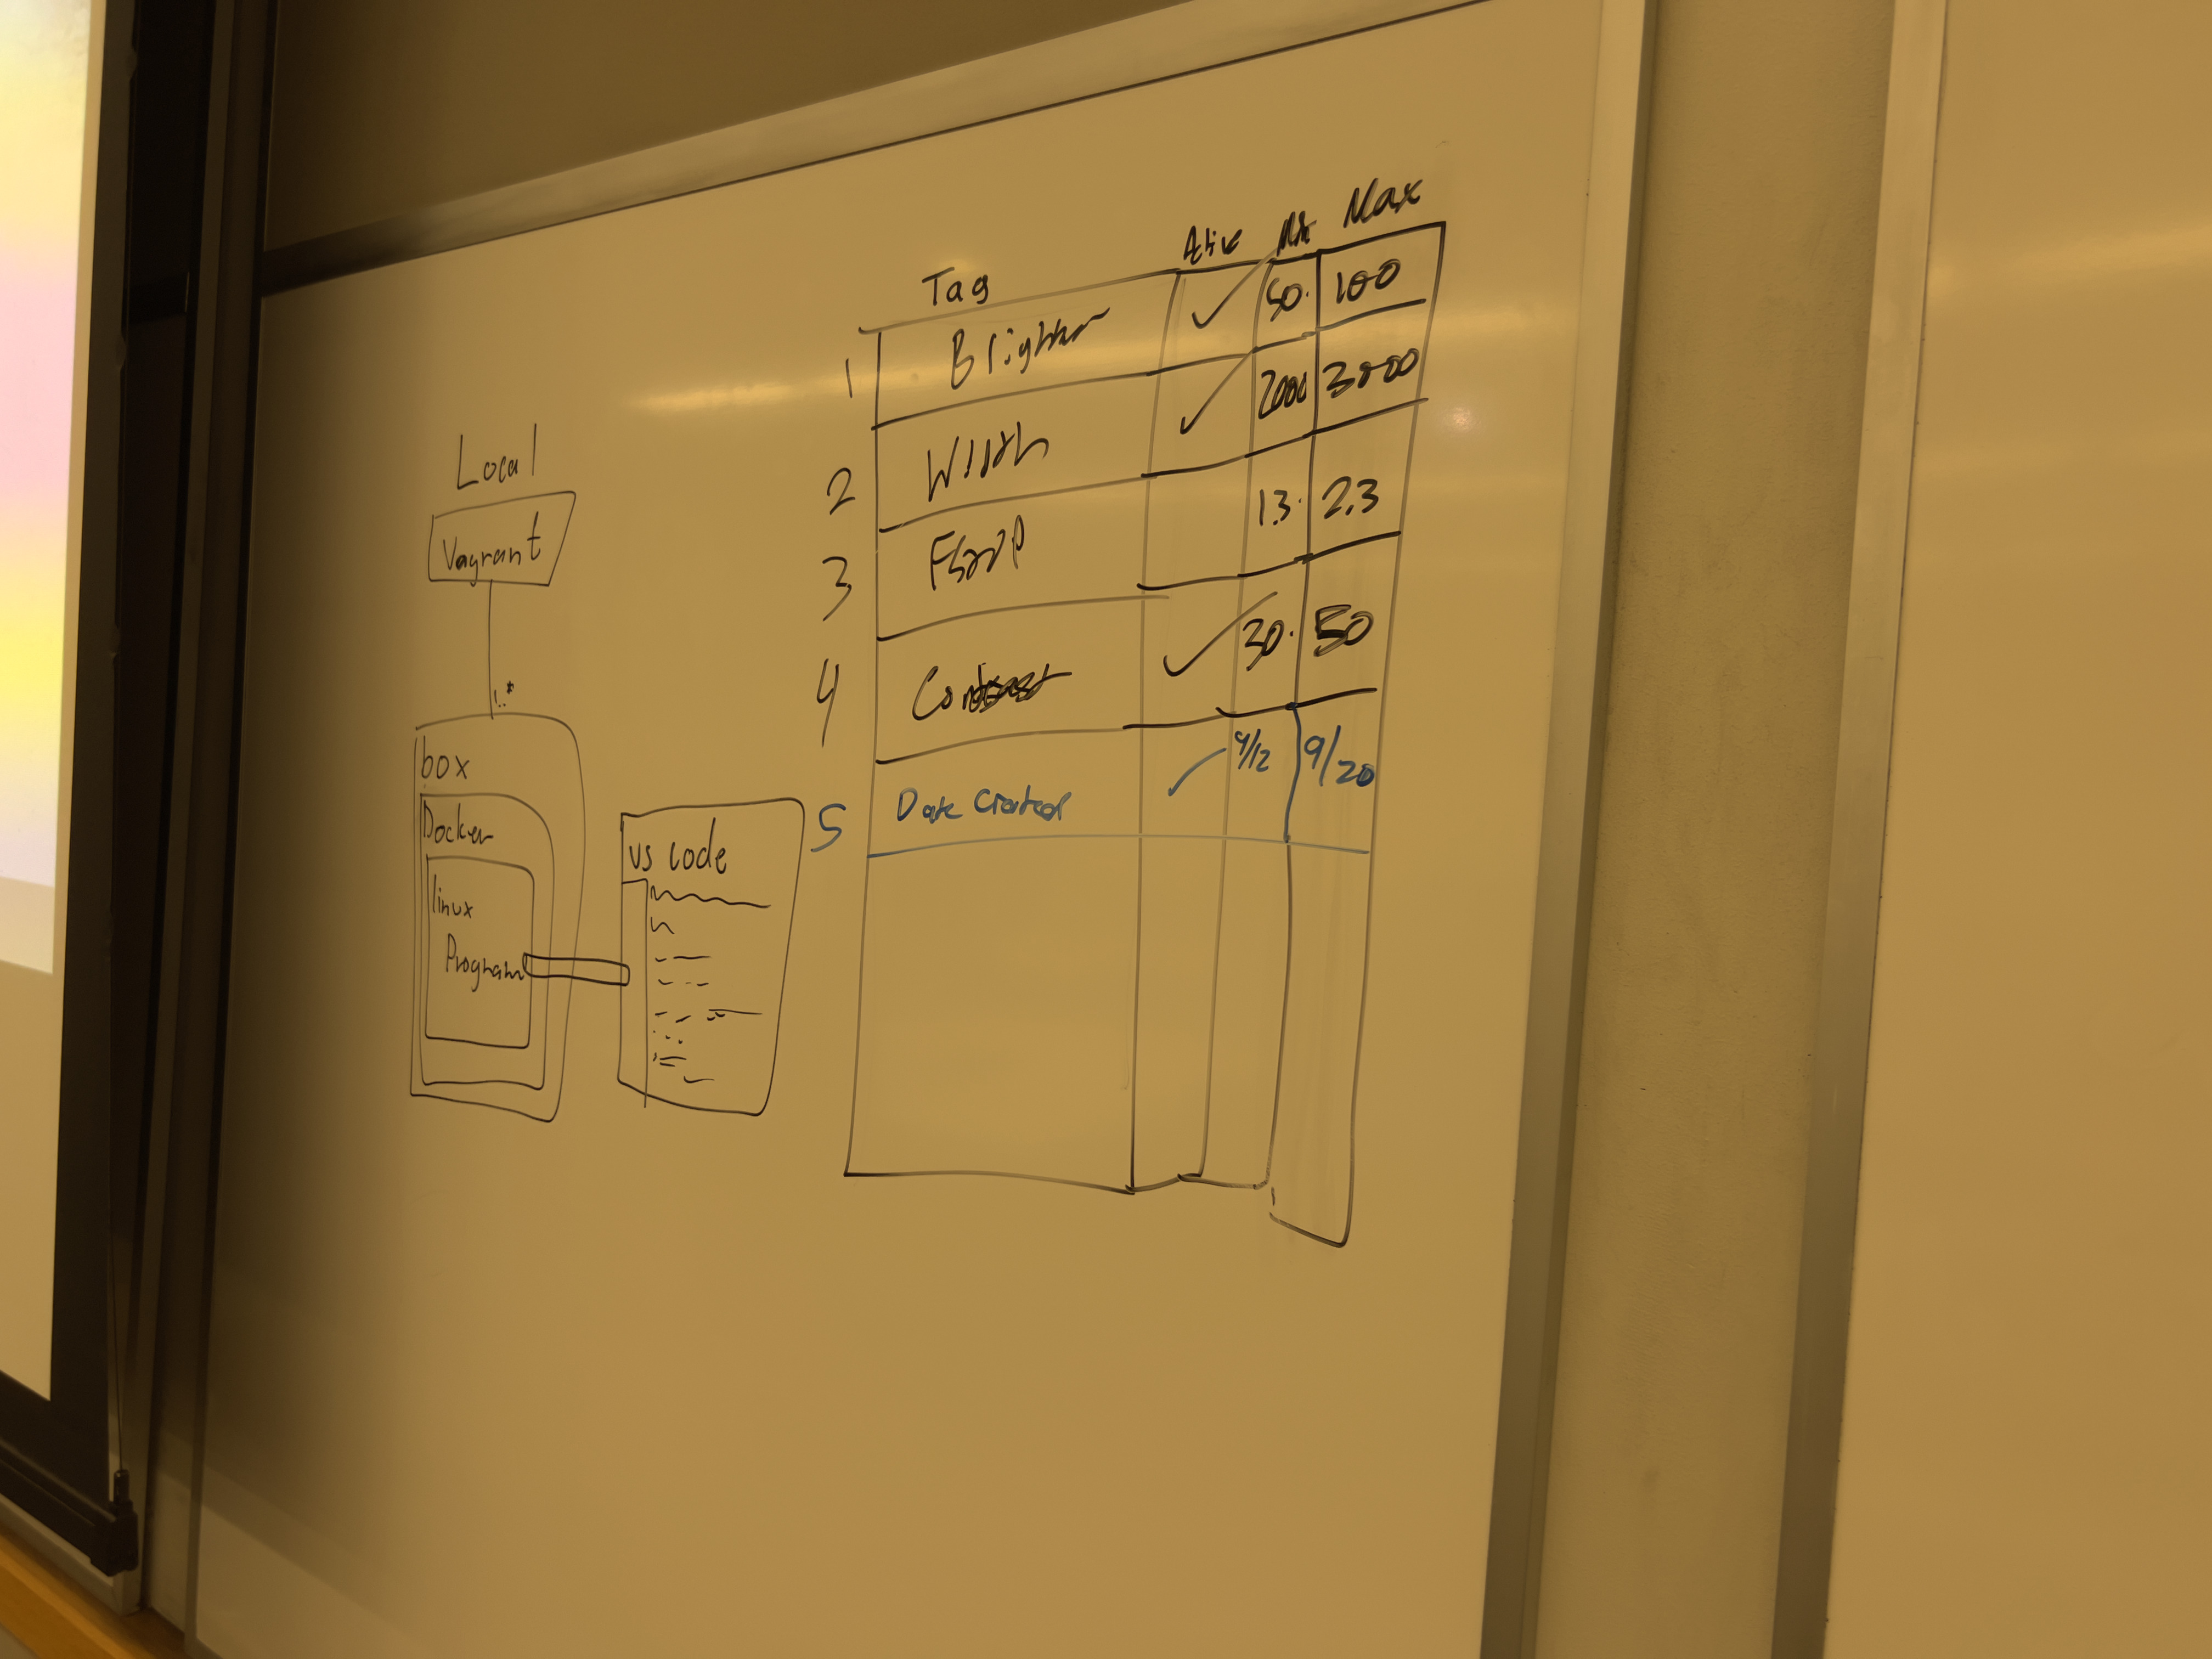 Local
Vagrant
1..*
box
Docker
linux
Program
vs code
Tag Max
1 50. 100
2 Width 2000 3000
3 1.3. 2.3
4 Contrast 30. 50
5 Date Created 9/12 9/20